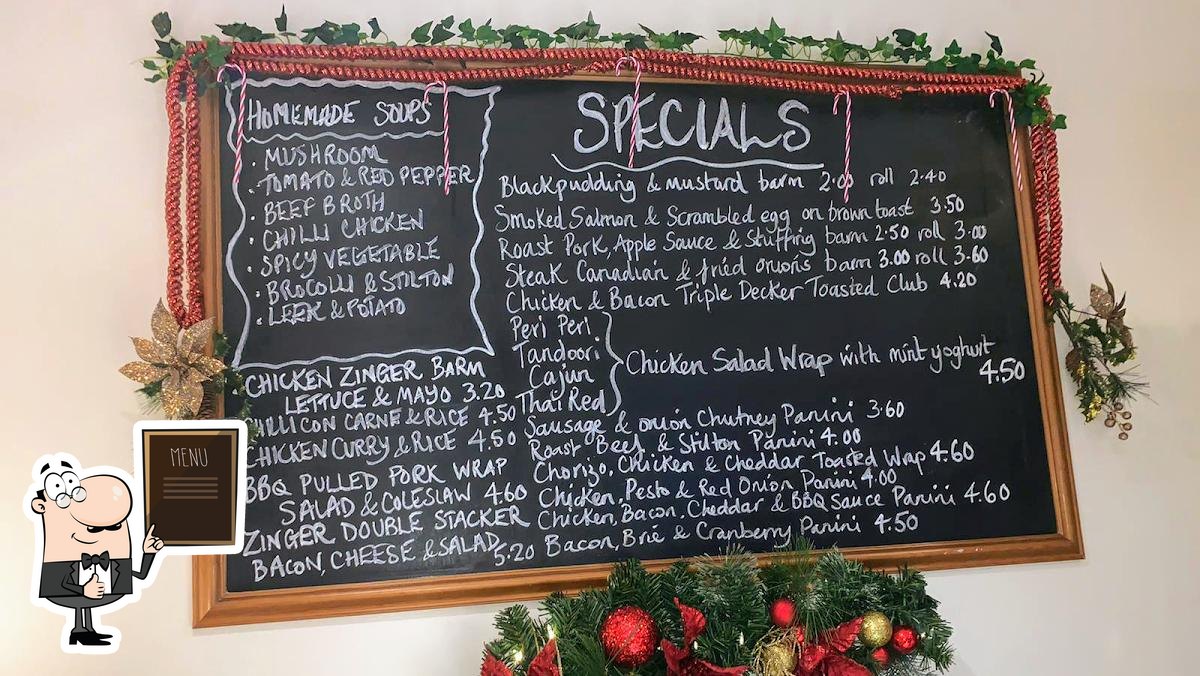 HOMEMADE SOUPS
· MUSHROOM
· TOMATO & RED PEPPER
· BEEF BROTH
· CHILLI CHICKEN
· SPICY VEGETABLE
· BROCOLLI & STILTON
· LEEK & POTATO
CHICKEN ZINGER BARM
LETTUCE & MAYO 3.20
CHILLI CON CARNE & RICE 4.50
CHICKEN CURRY & RICE 4.50
BBQ PULLED PORK WRAP
SALAD & COLESLAW 4.60
ZINGER DOUBLE STACKER
BACON, CHEESE & SALAD 5.20
SPECIALS
Blackpudding & mustard barm 2.00 roll 2.40
Smoked Salmon & Scrambled egg on brown toast 3.50
Roast Pork, Apple Sauce & Stuffing barm 2.50 roll 3.00
Steak Canadian & fried onions barm 3.00 roll 3.60
Chicken & Bacon Triple Decker Toasted Club 4.20
Peri Peri
Tandoori
Cajun
Thai Red
Chicken Salad Wrap with mint yoghurt
4.50
Sausage & onion Chutney Panini 3.60
Roast Beef & Stilton Panini 4.00
Chorizo, Chicken & Cheddar Toasted Wrap 4.60
Chicken, Pesto & Red Onion Panini 4.00
Chicken, Bacon, Cheddar & BBQ Sauce Panini 4.60
Bacon, Brie & Cranberry Panini 4.50
MENU